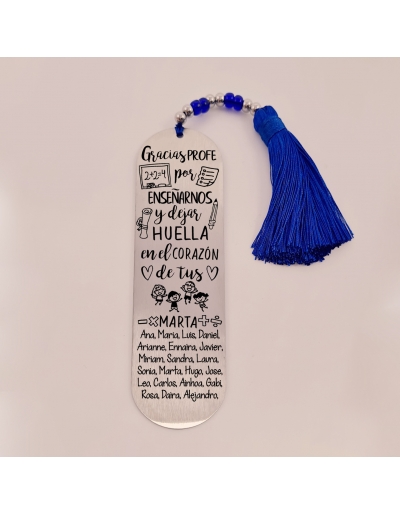 Gracias PROFE
2+2=4 por
ENSEÑARNOS
y dejar
HUELLA
en el CORAZÓN
de tus
−×MARTA+÷
Ana, Maria, Luis, Daniel,
Arianne, Ennaira, Javier,
Miriam, Sandra, Laura,
Sonia, Marta, Hugo, Jose,
Leo, Carlos, Ainhoa, Gabi,
Rosa, Daira, Alejandro,